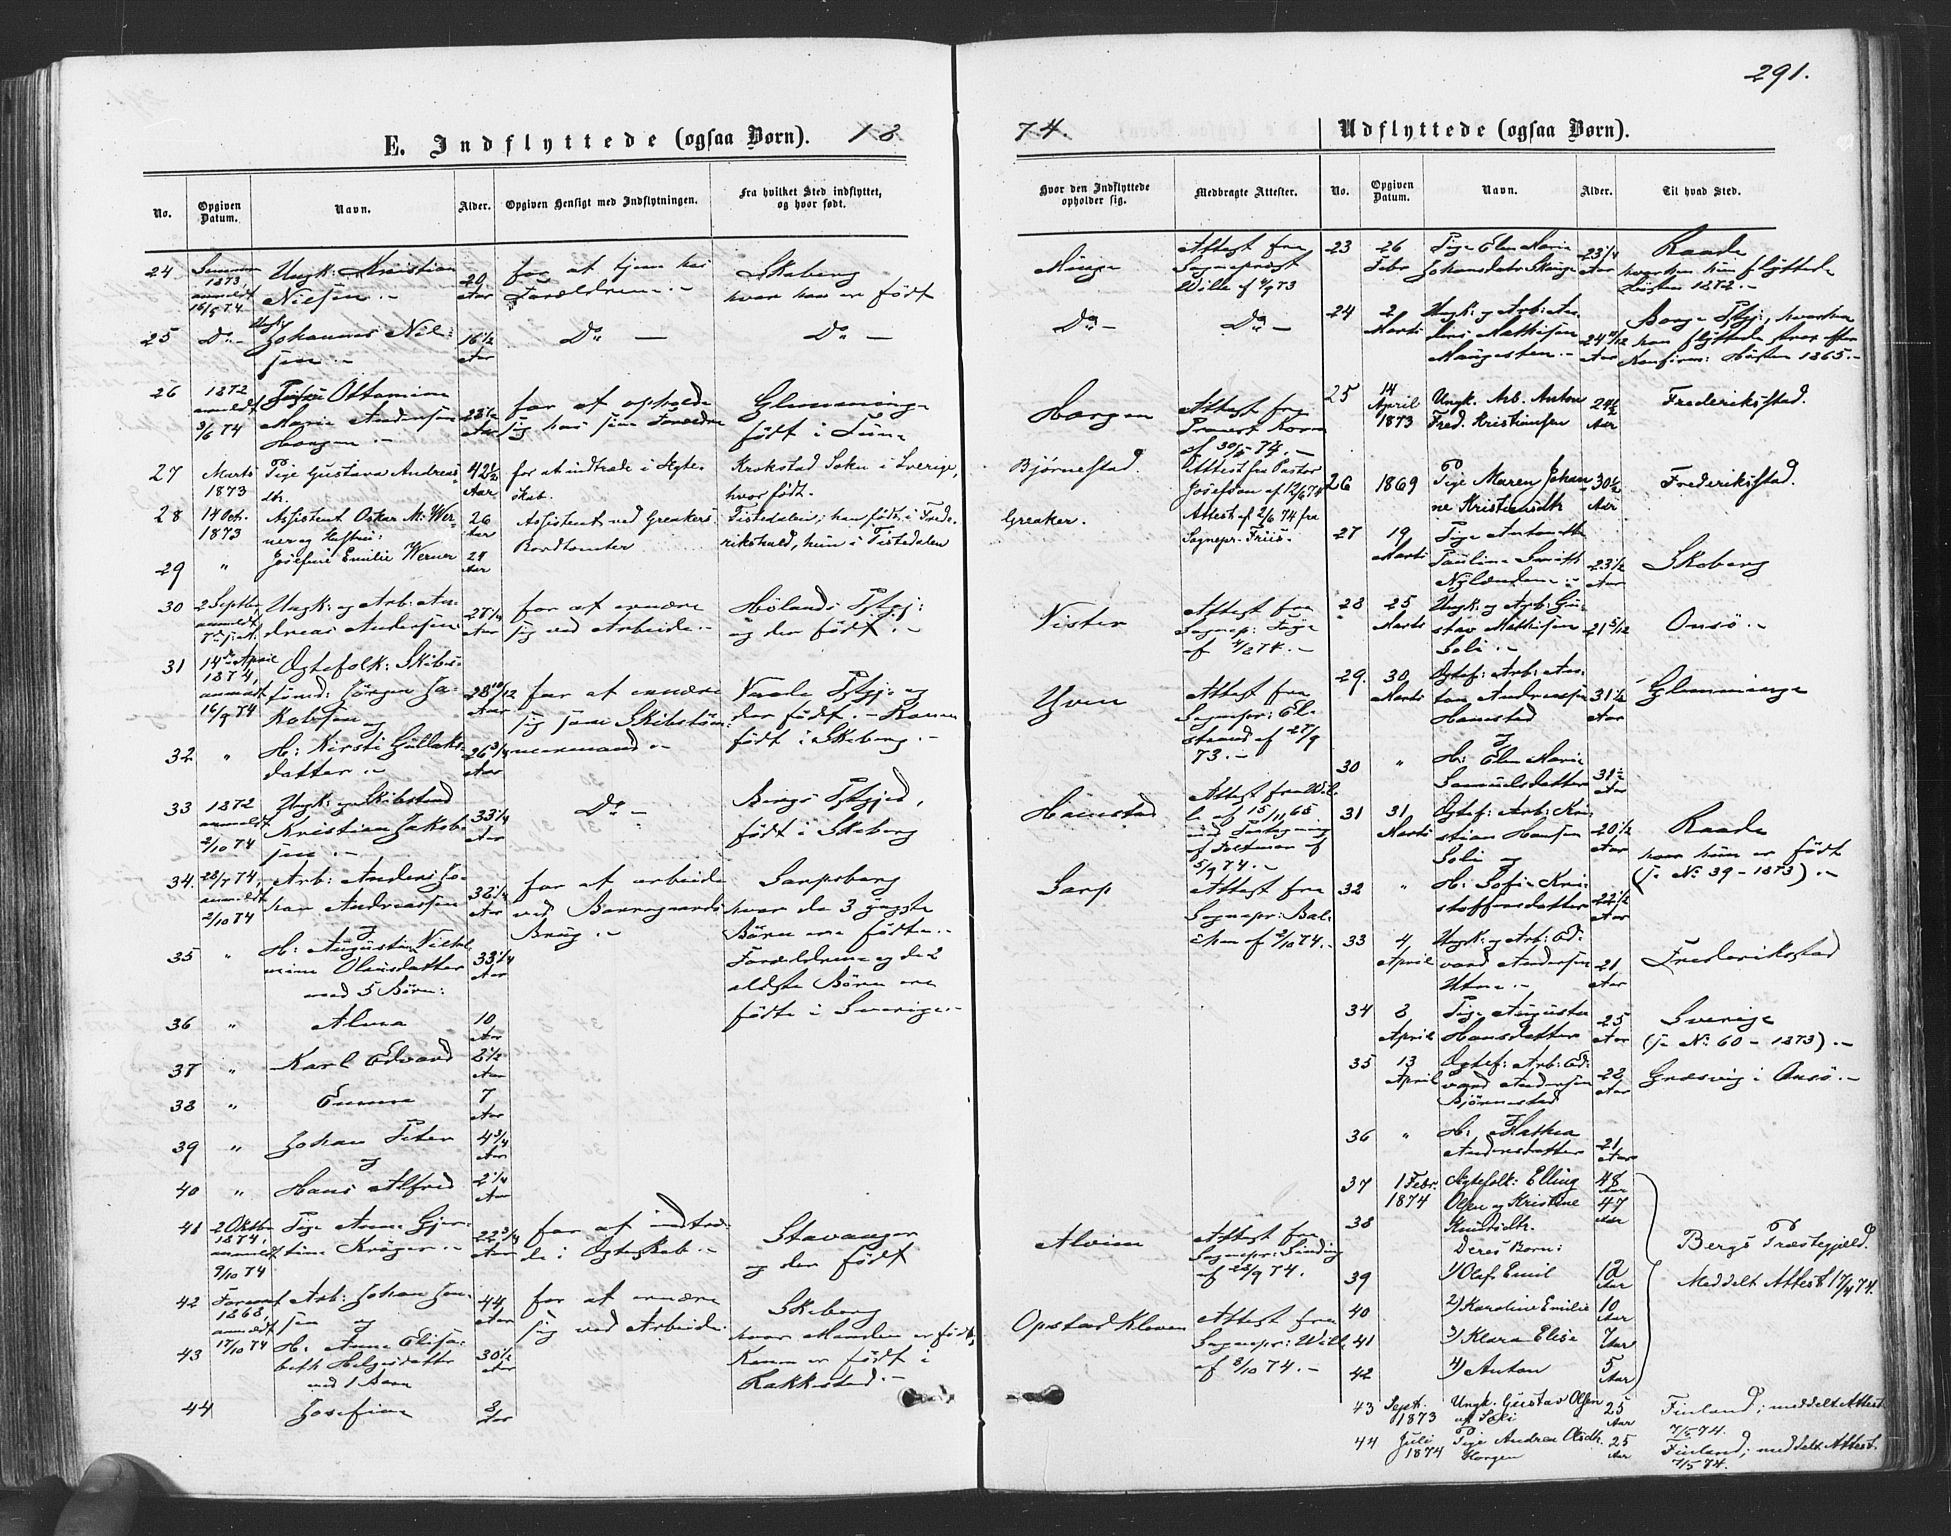 291.
E. Indflyttede (ogsaa Børn). 18
74. Udflyttede (ogsaa Børn).
No. Opgiven Datum. Navn. Alder. Opgiven Hensigt med Indflytningen. Fra hvilket Sted indflyttet, og hvor født.
Hvor den Indflyttede opholder sig. Medbragte Attester. No. Opgiven Datum. Navn. Alder. Til hvad Sted.
24 1873, anmeldt 16/5 74 Ungk: Kristian Nielsen 20 Aar for at tjene hos Forældrene Skeberg hvor han er født
25 Do Ungk: Johannes Nilsen 16 1/2 Aar Do Do
26 1872 anmeldt 3/6 74 Pige Ottomine Marie Andersen Horgen Aar for at opholde sig hos sine Forældre Glemminge født i Tune
27 Marts 1873 Pige Gustava Andreasdtr. 42 1/2 Aar for at indtræde i Ægteskab. Krokstad Sokn i Sverige, hvor født.
28 14 Oct. 1873 Assistent Oskar M. Werner og Hustru: 26 Aar Assistent ved Greakers Bordtomter Tistedalen; han født i Frederikshald, hun i Tistedalen
29 " Josefine Emilie Werner Aar
30 2 Septbr, anmeldt Ungk: og Arb: Andreas Andersen 27 1/4 Aar for at ernære sig ved Arbeide Hølands Pstgj: og der født.
31 14de April 1874, anmeldt 16/9 74 Ægtefolk: Jørgen Jakobsen og 28 10/12 Aar for at ernære sig som Skibstømmermand Vaale Pstgj. og der født. - Konen født i Skeberg.
32 " H: Kirsti Gullaksdatter 26 3/4 Aar
33 1872 anmeldt 2/10 74 Ungk: og Skibstmd Kristian Jakobsen 33 1/4 Aar Do Bergs Pstgjed, født i Skeberg
34. 28/7 74, anmeldt 2/10 74 Arb: Anders Johan Andreassen og 32 1/4 Aar for at arbeide ved Borregaards Brug Sarpsborg hvor de 3 yngste Børn ere fødte.
35 " H: Augustine Olausdatter med 5 Børn: 33 1/4 Aar Forældrene og de 2 ældste Børn ere fødte i Sverige.
36 " Alma 10 Aar
37 " Karl Edvard 8 1/2 Aar
38 " Emma 7 Aar
39 " Johan Peter og 4 3/4 Aar
40 " Hans Alfred 2 1/4 Aar
41 2 Oktbr 1874, anmeldt 9/10 74 Pige Anne Gjertine Krøger 22 3/4 Aar for at indtræde i Ægteskab Stavanger og der født
42 1868, anmeldt 17/10 74 Arb: Johan Jensen og 44 Aar for at ernære sig ved Arbeide Skeberg hvor Manden er født,
43 H: Anne Elisabeth Helgesdatter med 1 Barn 30 1/2 Aar Konen er født i Rakkestad.
44 Josefine 8 Aar
Minge Attest fra Sogneprest Wille af
Do Do
Horgen Attest fra af 30/5 74.
Bjørnestad. Attest fra Pastor Josefson af 12/6 74
Greaker. Attest af 2/6 74 fra Sognepr. Friis.
Nister Attest fra Sognep:
Yven Attest fra Sognepr: Elstrand af 27/9 73.
Hannestad Attest fra Wille af 15/11 65 af 5/9 74.
Sarp Attest fra Sognepr: af 2/10 74.
Alvim Attest fra Sognepr: af 28/9 74.
Opstad Kloven Attest fra Sognepr: Wille af 8/10 74.
23 26 Febr Pige Elen Marie Johansdatr Minge 23 1/4 Aar Raade hvorhen hun flyttede Høsten 1872.
24 2 Marts Ungk: og Arb: Mathisen 24 11/12 Aar Borge Pstgj:, hvorhen han flyttede strax efter Konfirm: Høsten 1865.
25 14 April 1873 Ungk. Arb. Anton Fred. Kristiansen 24 1/2 Aar Frederiksstad.
26 1869 Pige Maren Johanne Kristiansdtr 30 1/2 Aar Frederiksstad.
27 19 Marts Pige Antonette Pauline Smith Nylænden 23 1/2 Aar Skeberg
28 25 Marts Ungk: og Arb: Gustav Mathisen Soli 21 5/12 Onsö
29. 30 Marts Ægtef: Arb: Anton Andreassen Hannestad 31 1/2 Aar Glemminge
30 " og H: Elen Marie Samuelsdatter 31 1/2 Aar
31 31 Marts Ægtef: Arb: Kristian Hansen Soli og 20 1/2 Aar Raade hvor hun er født
32 " H: Sofie Kristoffersdatter 22 1/2 Aar (se No: 39 - 1873).
33 4 April Ungk: og Arb: Edvard Andersen 21 Aar Frederiksstad
34 8 April Pige Augusta Hansdatter 25 Aar Sverige (se No: 60 - 1873).
35 13 April Ægtef: Arb: Edvard Andersen Bjørnestad 22 Aar Græsvig i Onsö.
36 " H: Andersdatter 21 Aar
37 1 Febr. 1874 Ægtefolk: Elling Olsen og Kristine 48 Aar 47 Aar
38 Knudsdtr.
Deres Børn:
39 1) Olaf Emil 12 Aar Bergs Præstegjeld. Meddelt Attest 17/4 74.
40 2) Karoline Emilie 10 Aar
41 3) Klara Elise 7 Aar
42 4) Anton 5 Aar
43 Sept. 1873 Ungk. Gustav Olsen af Soli 25 Aar Finland; meddelt Attest 7/5 74.
44 Juli 1874 Pige Andrea Olsdtr. Horgen 25 Aar Finland; meddelt Attest. 7/5 74.